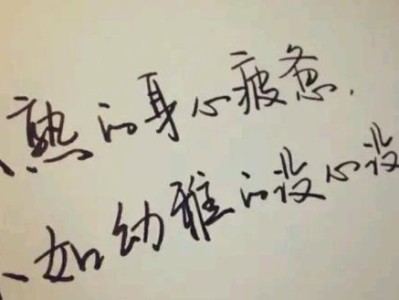 熟的身心疲惫.
不如幼稚的没心没